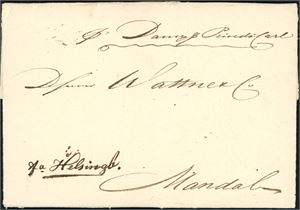 pr Dampsk Prinds Carl
D'Herrer Wattne & Co
fra Helsingb.
Mandal